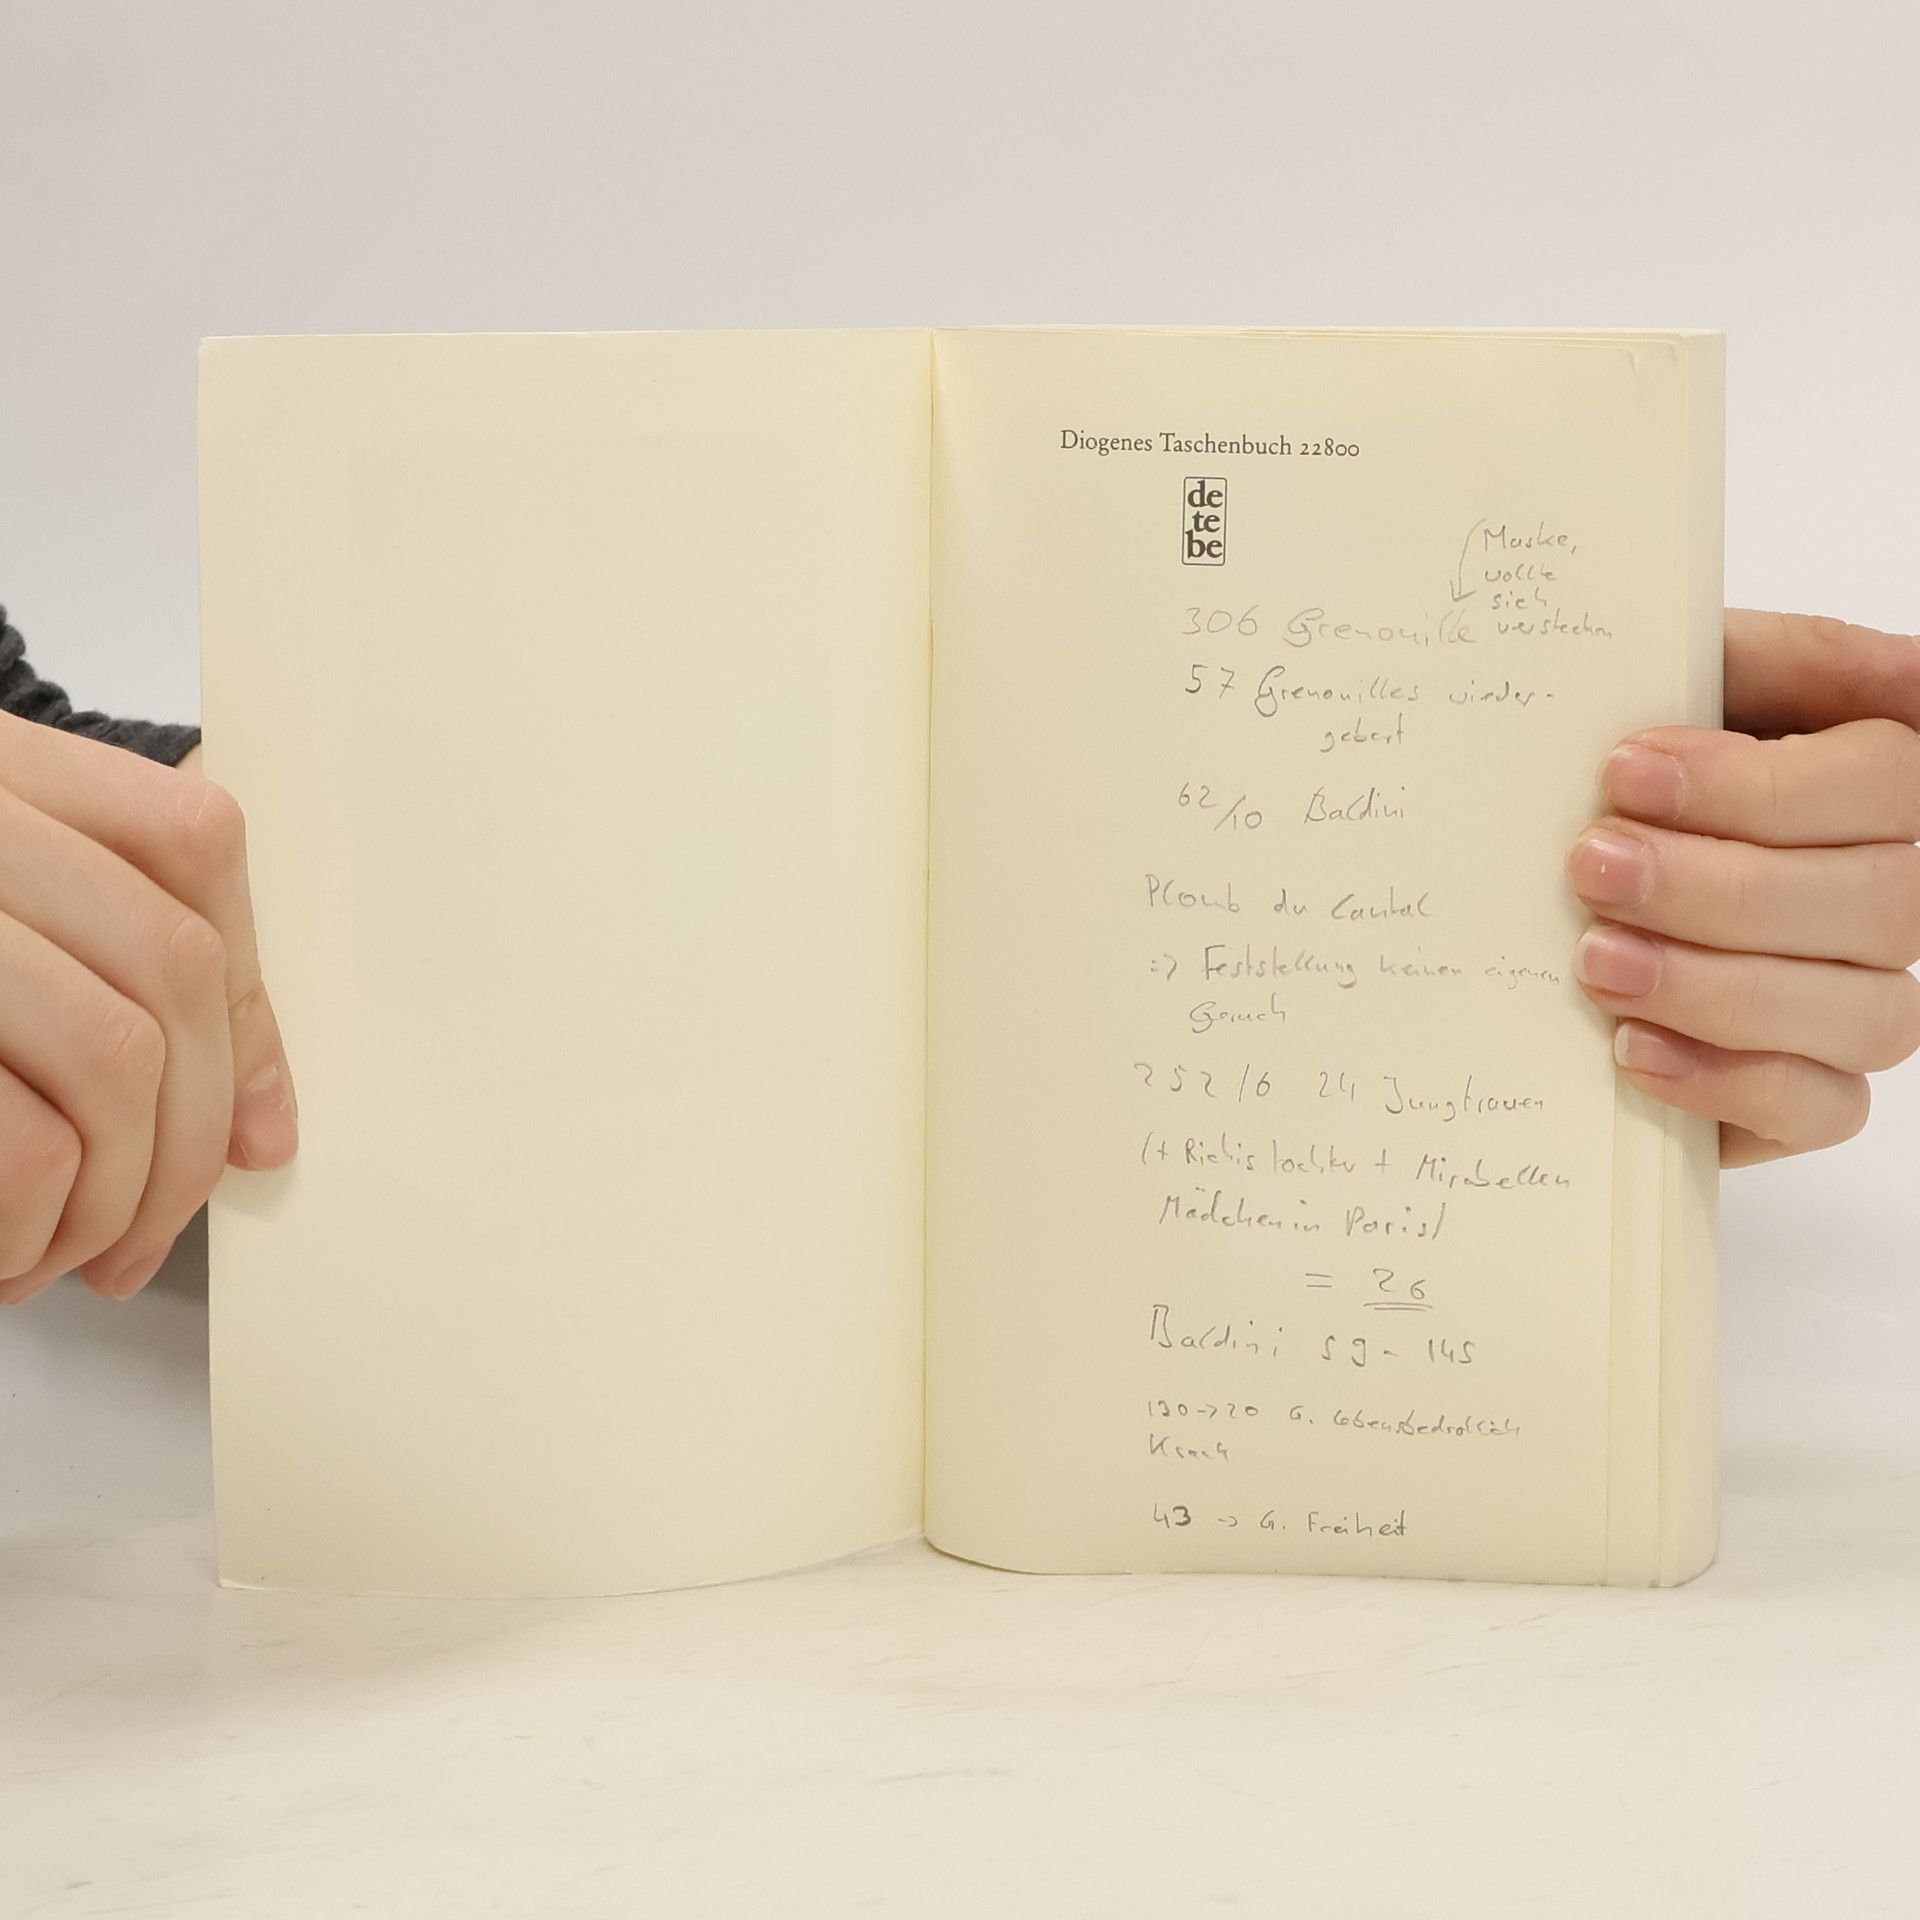 Diogenes Taschenbuch 22800
de
te
be
Maske,
wollte
sich
verstecken
306 Grenouille
57 Grenouilles wieder-
geburt
62/10 Baldini
Plomb du Cantal
=> Feststellung keinen eigenen
Geruch
252/6 24 Jungfrauen
(+ Richis Tochter + Mirabellen
Mädchen in Paris)
= 26
Baldini 59 - 145
130->20 G. lebensbedrohlich
Krank
43 -> G. Freiheit